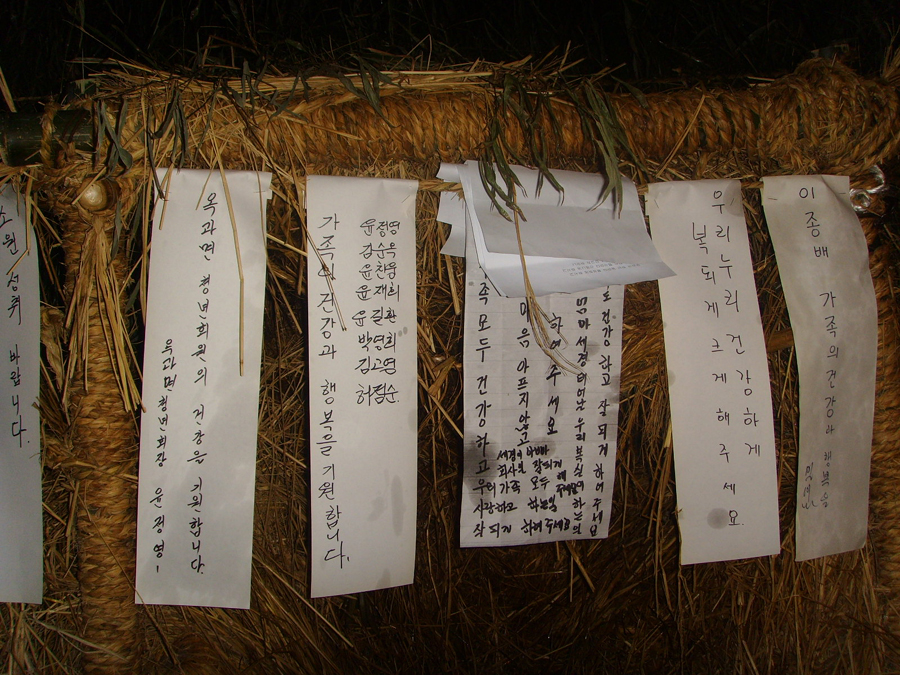 소원성취 바랍니다.
옥과면 청년회원의 건강을 기원합니다.
옥과면청년회장 윤정영-
가족의 건강과 행복을 기원합니다.
윤정영
김순옥
윤찬웅
윤재희
윤길환
박영희
김고영
허점순
건강하고 잘 되게 하여주세요
하여주세요
마음 아프지않고
족모두 건강하고
세경이 아빠
회사도 잘되게
우리가족 모두
사랑하고 하는일
잘되게 하여주세요
우리누리 건강하게
복되게 크게 해주세요.
이종배 가족의 건강과 행복을